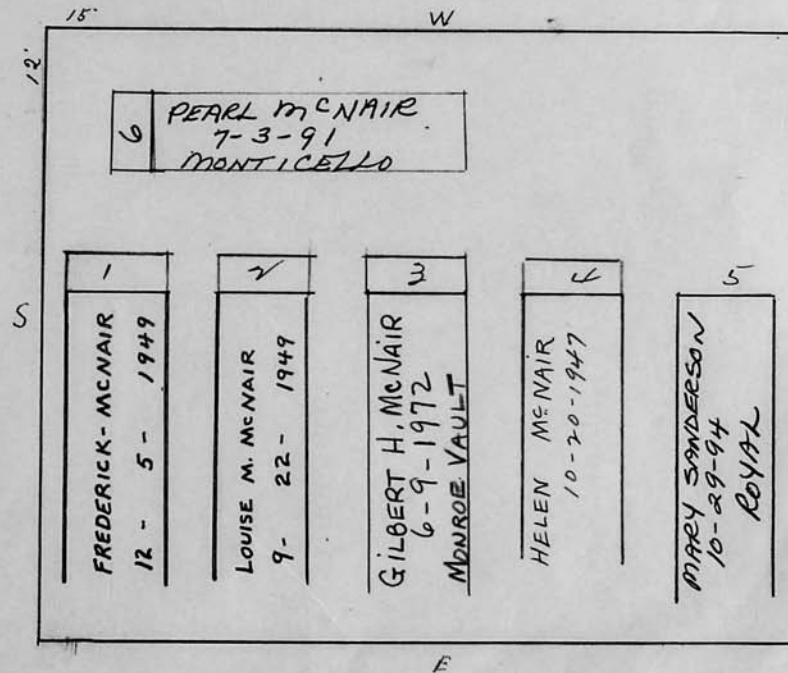 15'
W
12'
6
PEARL McNAIR
7-3-91
MONTICELLO
S
1
FREDERICK-MCNAIR
12 - 5 - 1949
2
LOUISE M. MCNAIR
9- 22- 1949
3
GILBERT H. McNAIR
6-9-1972
MONROE VAULT
4
HELEN McNAIR
10-20-1947
5
MARY SANDERSON
10-29-94
ROYAL
E